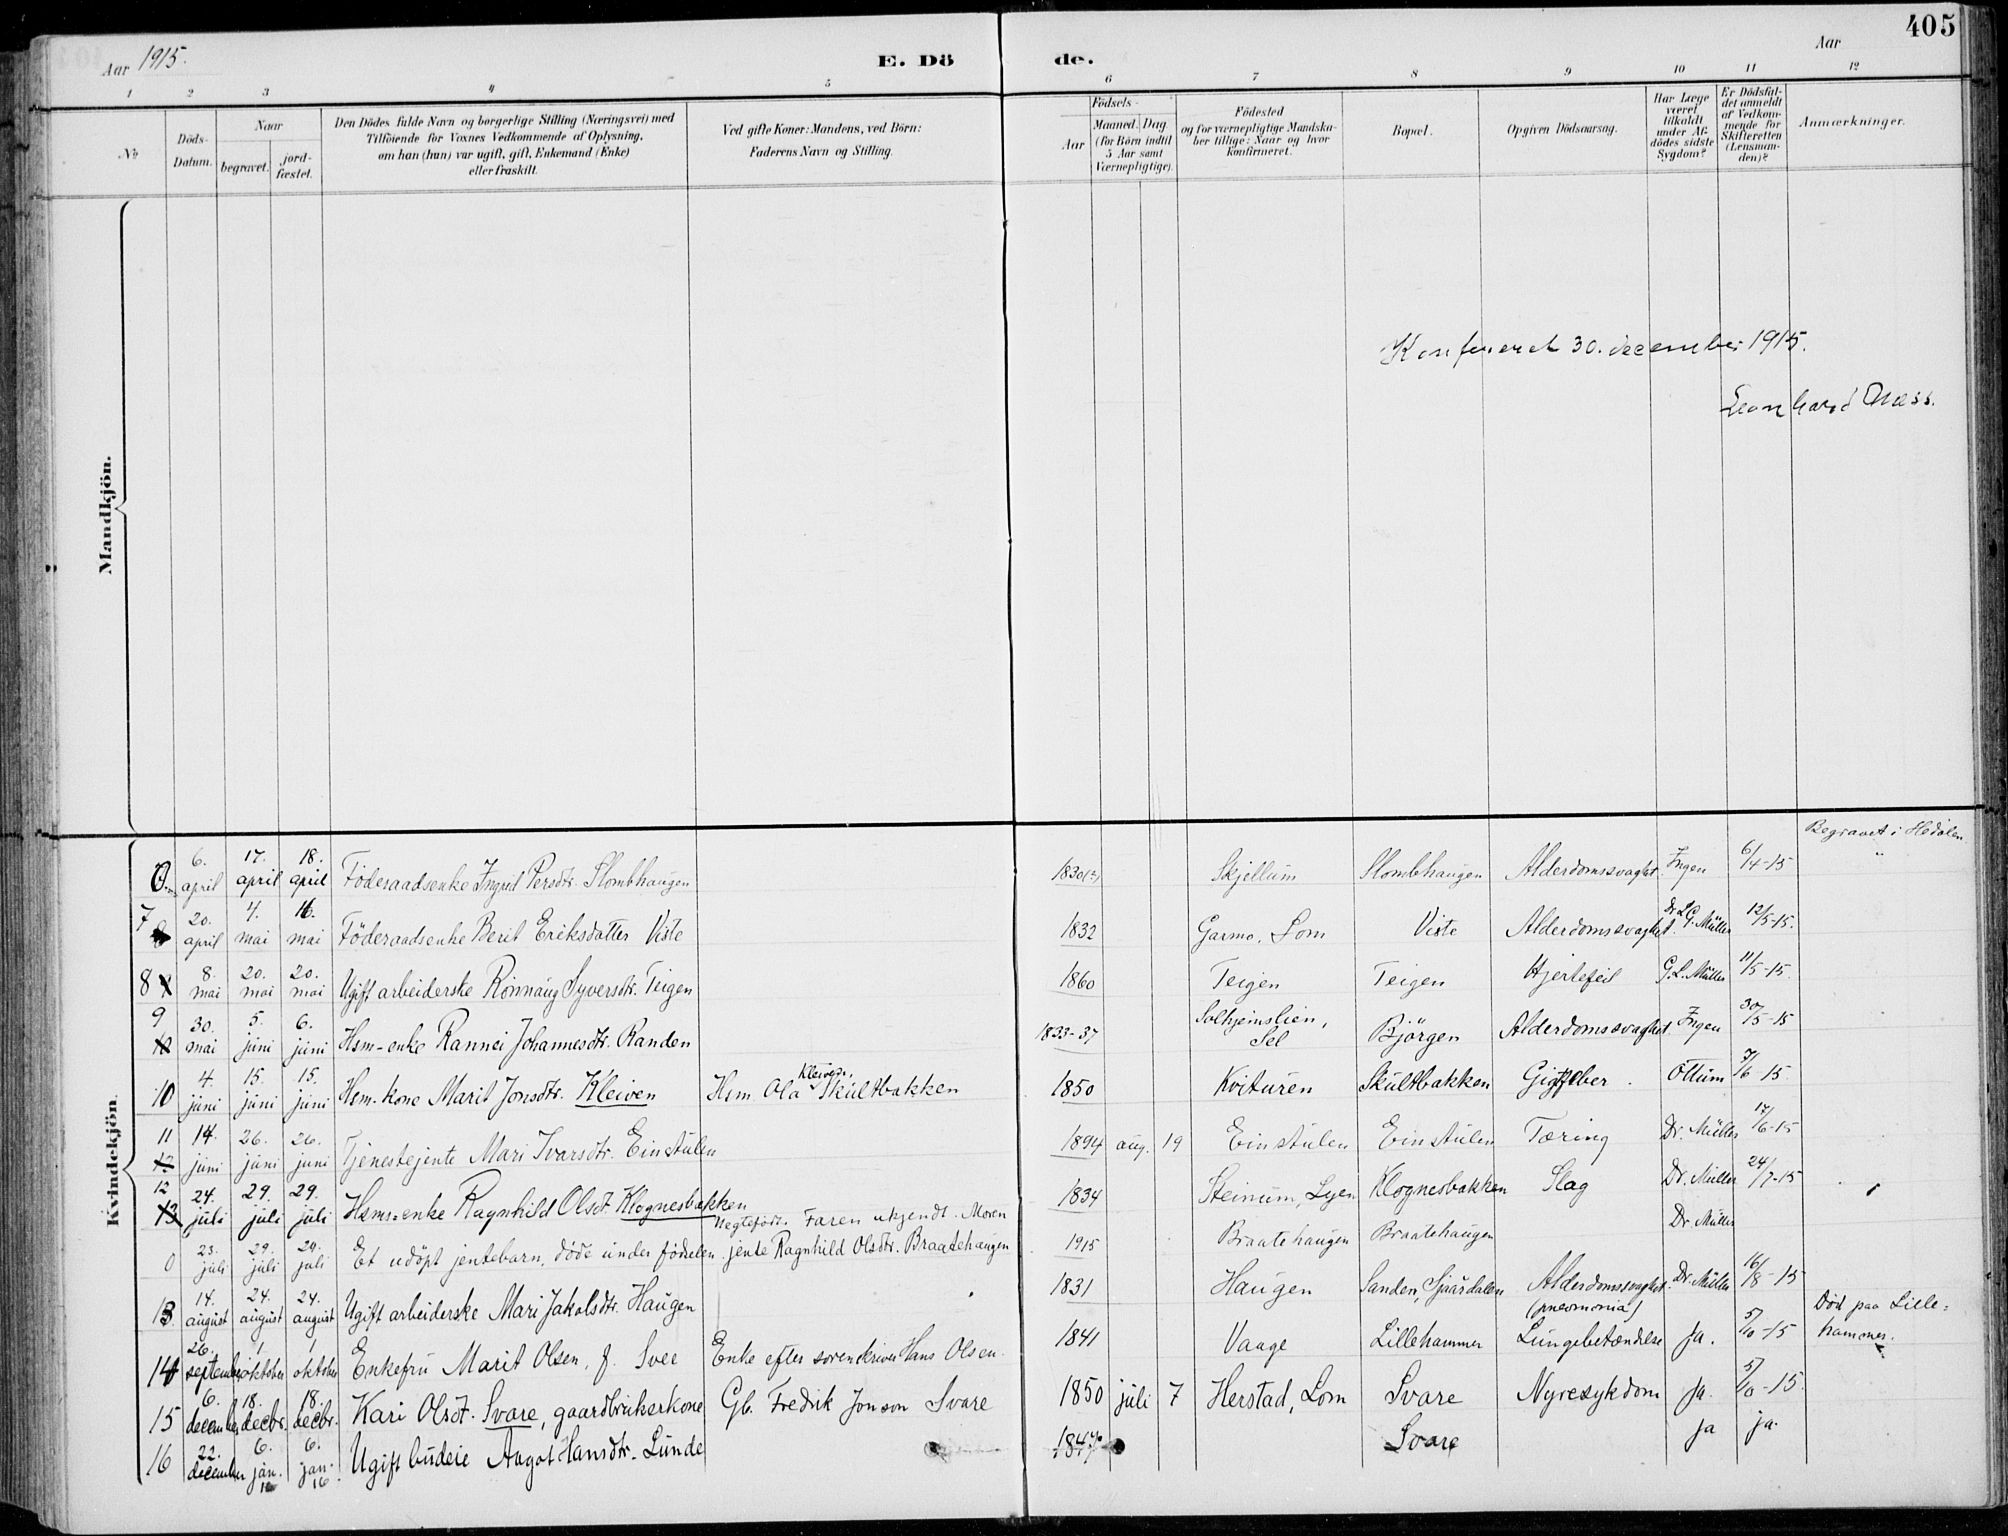 405
Aar 1915.
E. Dö de.
Aar
1 2 3 4 5 6 7 8 9 10 11 12
No
Döds-Datum.
Naar
begravet.
jord-fæstet.
Den Dödes fulde Navn og borgerlige Stilling (Næringsvei) med
Tilföiende for Voxnes Vedkommende af Oplysning,
om han (hun) var ugift, gift, Enkemand (Enke)
eller fraskilt.
Ved gifte Koner: Mandens, ved Börn:
Faderens Navn og Stilling.
Födsels-
Aar
Maaned. Dag
(for Börn indtil
5 Aar samt
Værnepligtige).
Födested
og for værnepligtige Mandska-
ber tillige: Naar og hvor
konfirmeret.
Bopæl.
Opgiven Dödsaarsag.
Har Læge
været
tilkaldt
under Af-
dödes sidste
Sygdom?
Er Dödsfal-
det anmeldt
af Vedkom-
mende for
Skifteretten
(Lensman-
den)?
Anmærkninger.
Mandkjön.
Konfereret 30. december 1915.
Leonhard Næss.
Kvindekjön.
0. 6. april 17. april 18. april Föderaadsenke Ingrid Persdtr. Slombhaugen 1830(?) Skjellum Slombhaugen Alderdomssvaghet Ingen 6/4-15 Begravet i Hedalen
7 20. april 4. mai 16. mai Föderaadsenke Berit Eriksdatter Viste 1832 Garmo, Lom Viste Alderdomssvaghet. Dr. L.G. Müller 12/5-15.
8 8. mai 20. mai 20. mai Ugift arbeiderske Rönnaug Syversdtr. Teigen 1860 Teigen Teigen Hjertefeil G.L. Müller 11/5-15.
9 30. mai 5. juni 6. juni Hsm-enke Rannei Johannesdtr. Randen 1833-37 Solhjemslien, Sel Björgen Alderdomssvaghet Ingen 30/5-15
10 4. juni 15. juni 15. juni Hsm-kone Marit Jonsdtr. Kleiven Hsm. Ola Kleiven Skultbakken 1850 Kvituren Skultbakken Ottum 7/6-15
11 14. juni 26. juni 26. juni Tjenestejente Mari Ivarsdtr. Einstulen 1894 aug. 19 Einstulen Einstulen Tæring Dr. Müller 17/6-15
12 24. juli 29. juli 29. juli Hsms-enke Ragnhild Olsdt. Klognesbakken 1834 Steinum, Lyen Klognesbakken Slag Dr. Müller 24/7-15
0 23. juli 29. juli 29. juli Et udöpt jentebarn, döde under födselen. Uegtefödt. Faren ukjendt. Moren jente Ragnhild Olsdtr. Braatehaugen 1915 Braatehaugen Braatehaugen Dr. Müller
13. 14. august 24. august 24. august Ugift arbeiderske Mari Jakobsdtr. Haugen 1831 Haugen Sanden, Sjaardalen Alderdomssvaghet. Dr. Müller 16/8-15
14 26. september 1 oktober 1 oktober Enkefru Marit Olsen, f. Svee Enke efter sorenskriver Hans Olsen. 1841 Vaage Lillehammer (pneomonia) Lungebetændelse Ja. 5/10-15 Död paa Lille=hammer.
15 6. december 18. decbr. 18. decbr. Kari Olsdt. Svare, gaardbrukerkone Gb. Fredrik Jonson Svare 1850 juli 7 Herstad, Lom Svare Nyresykdom Ja. 5/10-15.
16 22. december 6. jan. 16 6. jan. 16 Ugift budeie Angot Hansdtr. Lunde 1847 Svare ja ja.